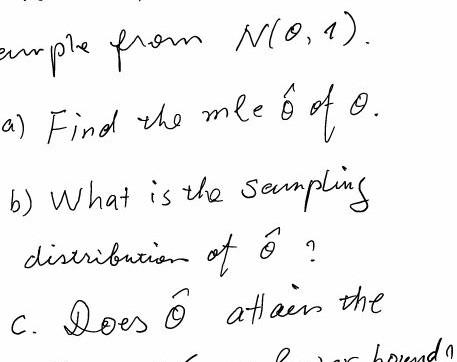 sample from N(θ, 1).
a) Find the mle θ̂ of θ.
b) What is the sampling
distribution of θ̂ ?
c. Does θ̂ attain the
lower bound?